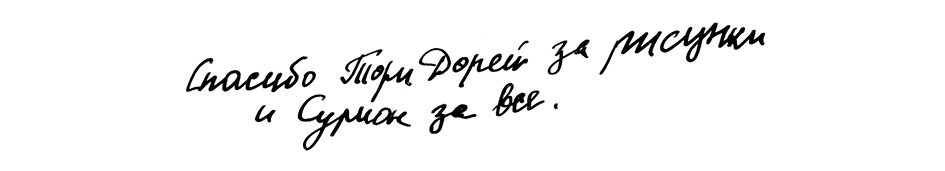 Спасибо Тори Дорей за рисунки
и Сумрон за все.